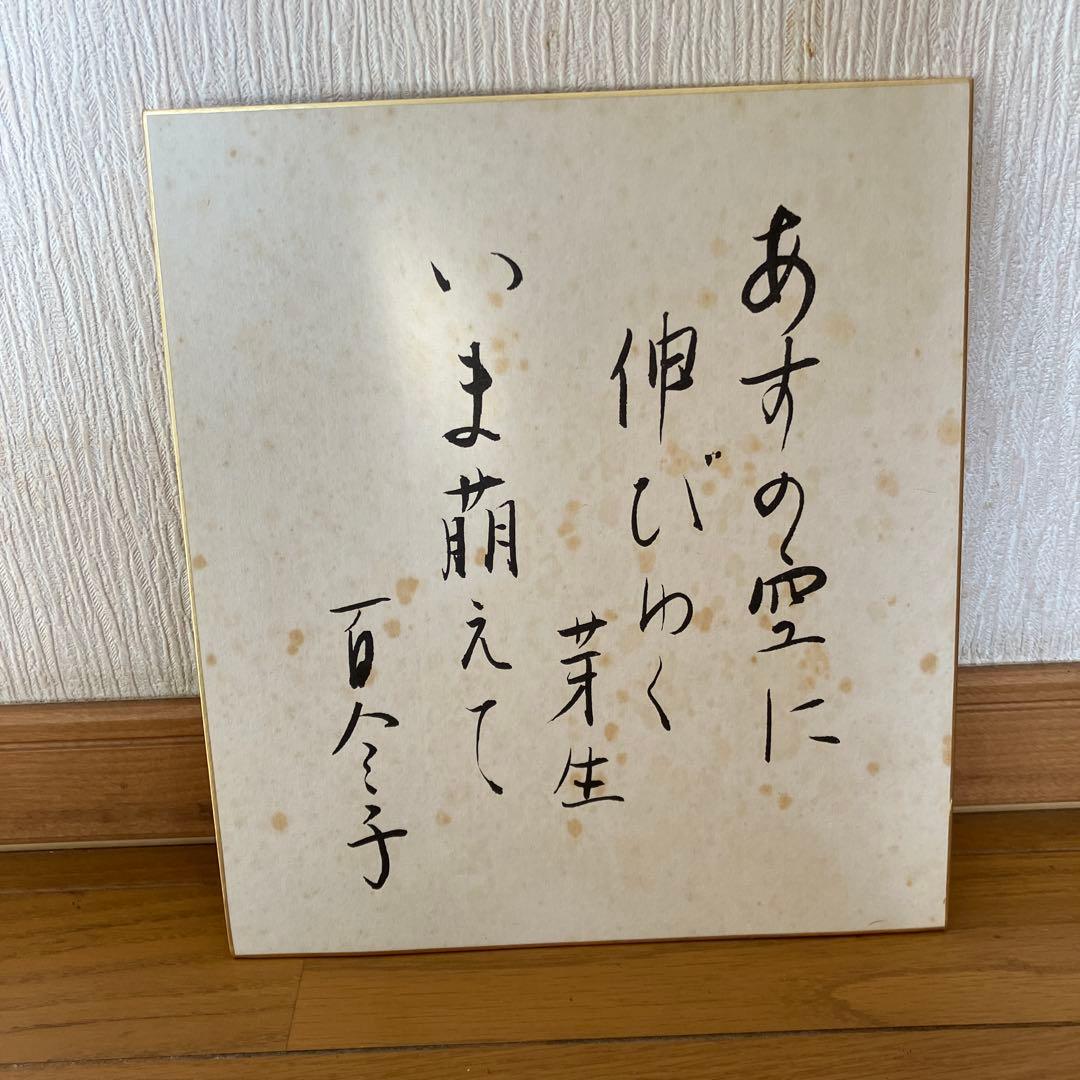 あすの空に
伸びゆく
芽生
いま萌えて
百合子